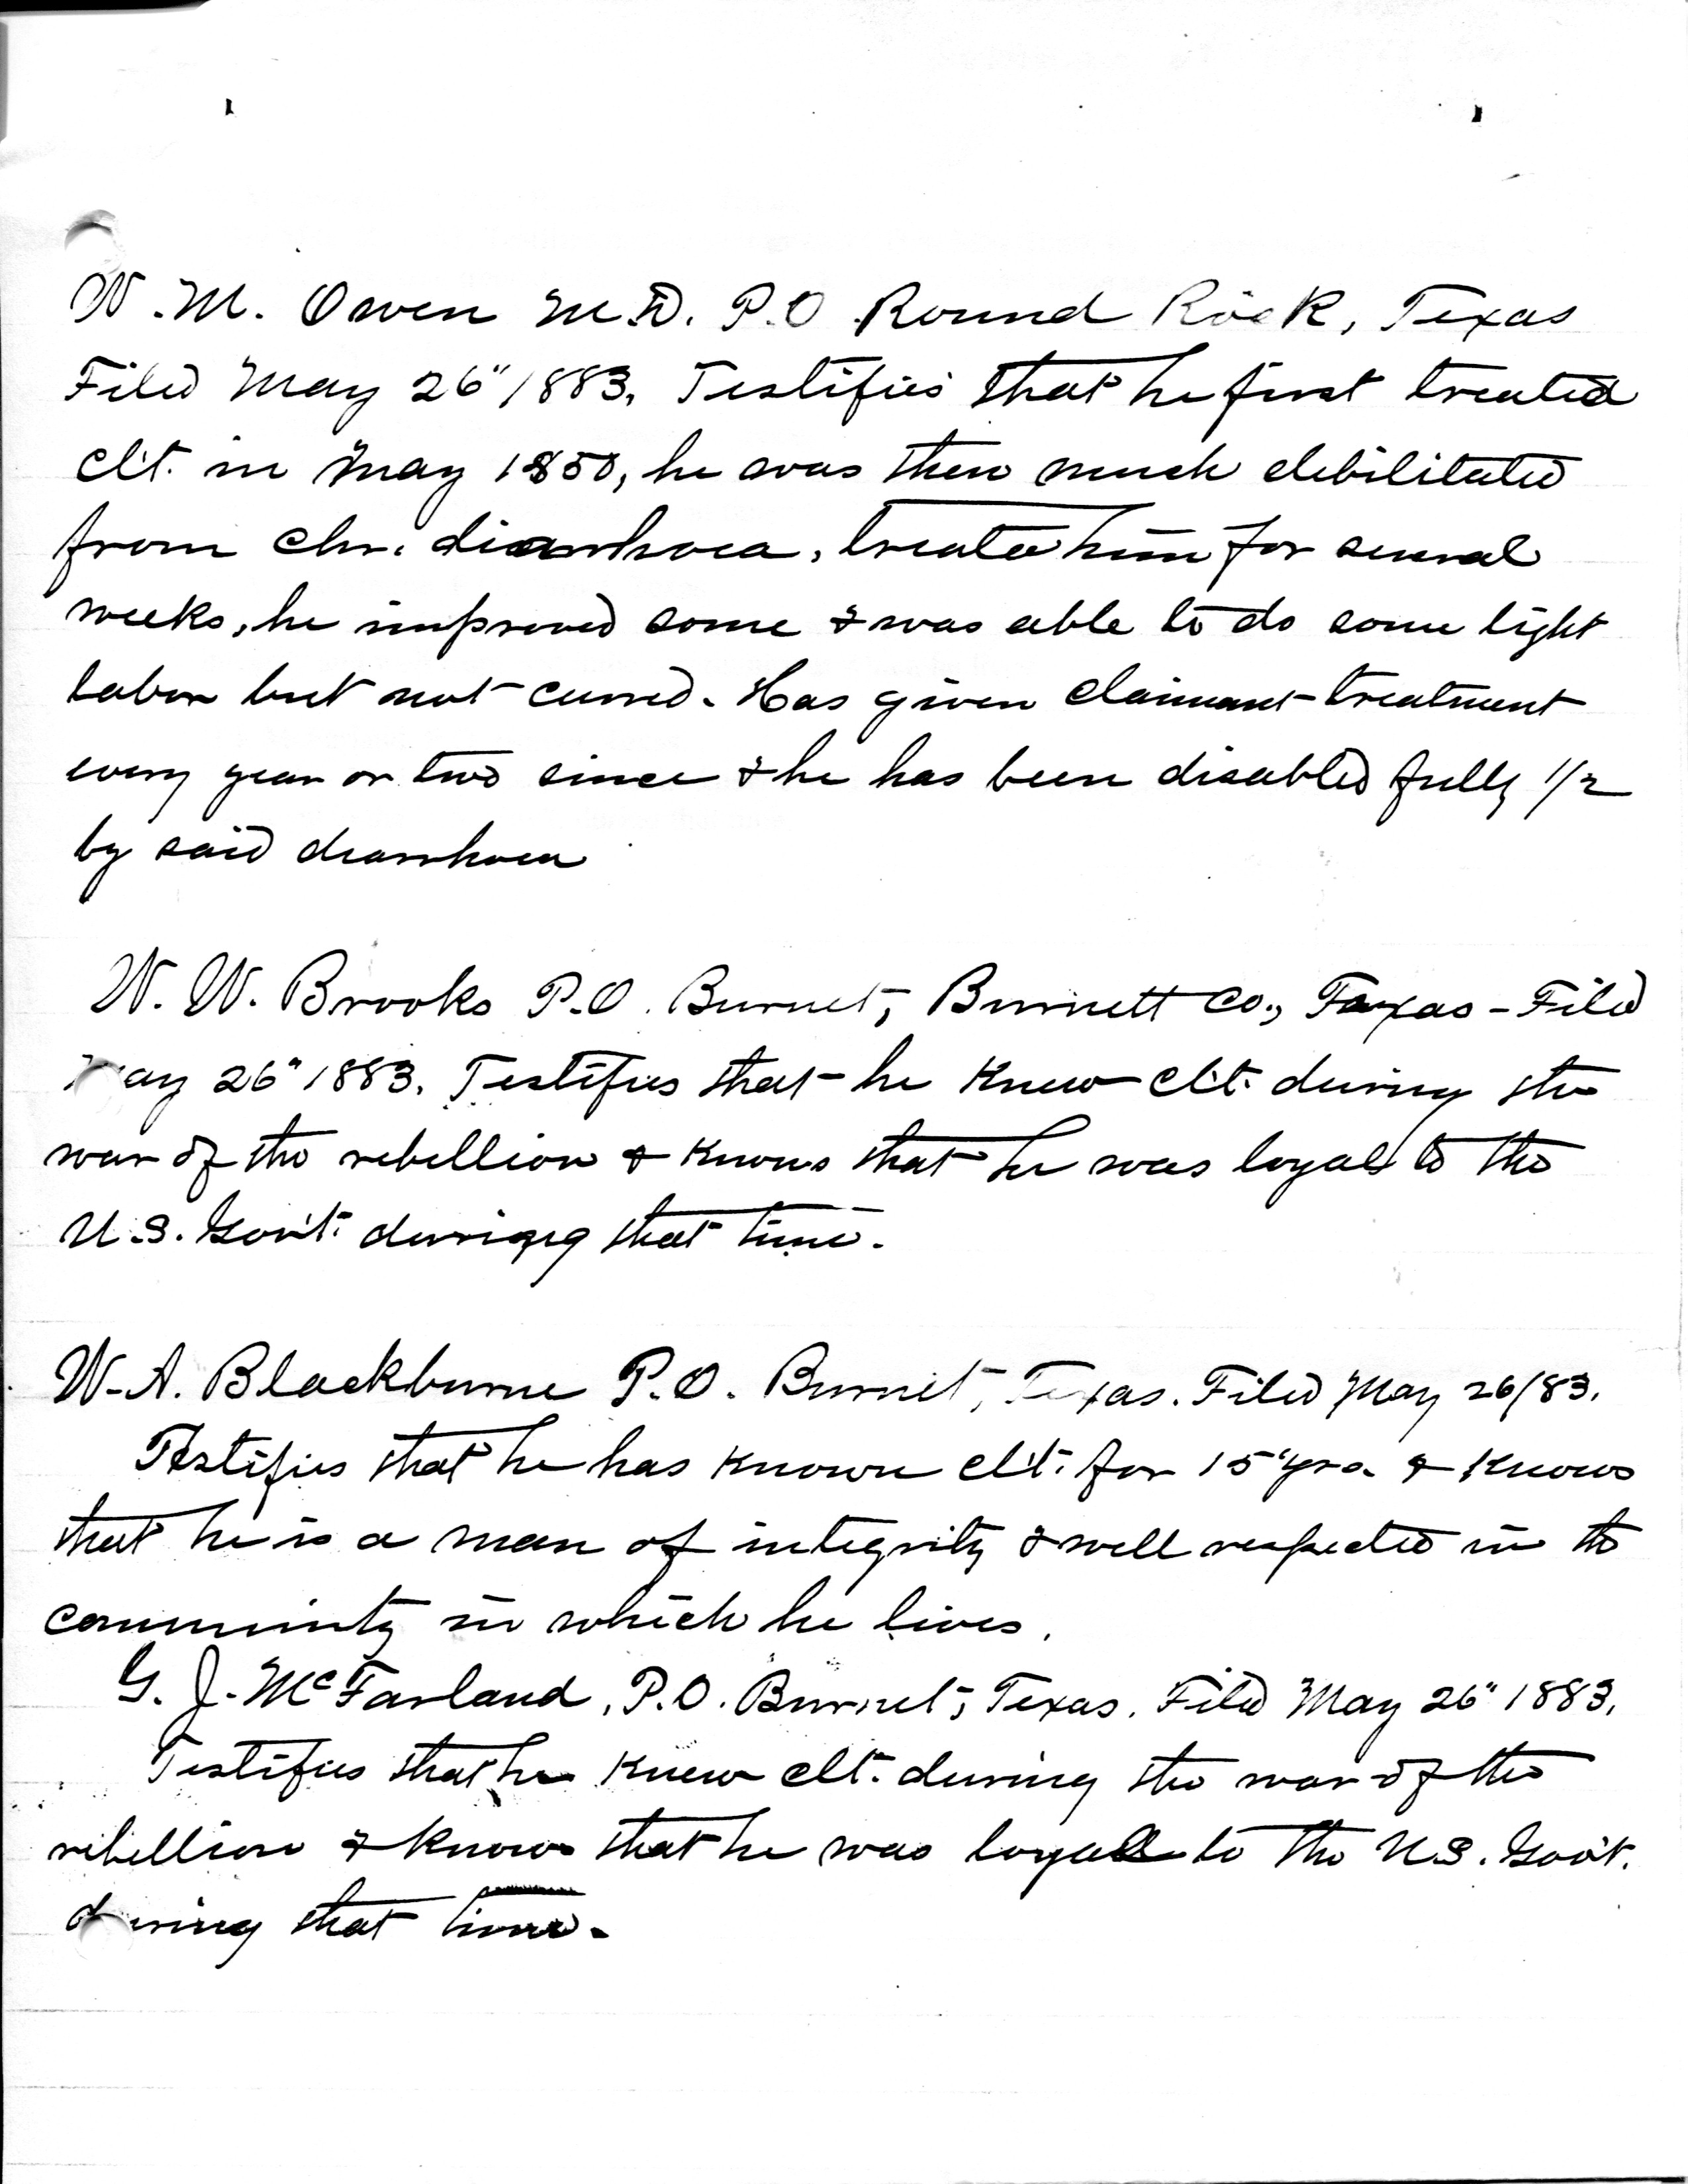 W. M. Owen M.D. P.O Round Rock, Texas
Filed May 26" 1883. Testifies that he first treated
clt. in May 1850, he was then much debilitated
from chr. diarrhoea, treated him for several
weeks, he improved some & was able to do some light
labor but not cured. Has given claimant treatment
every year or two since & he has been disabled fully 1/2
by said diarrhoea
W. W. Brooks P.O. Burnet, Burnett Co., Texas - Filed
May 26" 1883. Testifies that he knew clt. during the
war of the rebellion & knows that he was loyal to the
U.S. Gov't. during that time.
W. A. Blackburne P.O. Burnet, Texas. Filed May 26/83.
Testifies that he has known clt. for 15 yrs. & knows
that he is a man of integrity & well respected in the
community in which he lives.
G. J. McFarland, P.O. Burnet, Texas. Filed May 26" 1883.
Testifies that he knew clt. during the war of the
rebellion & knows that he was loyal to the U.S. Gov't.
during that time.